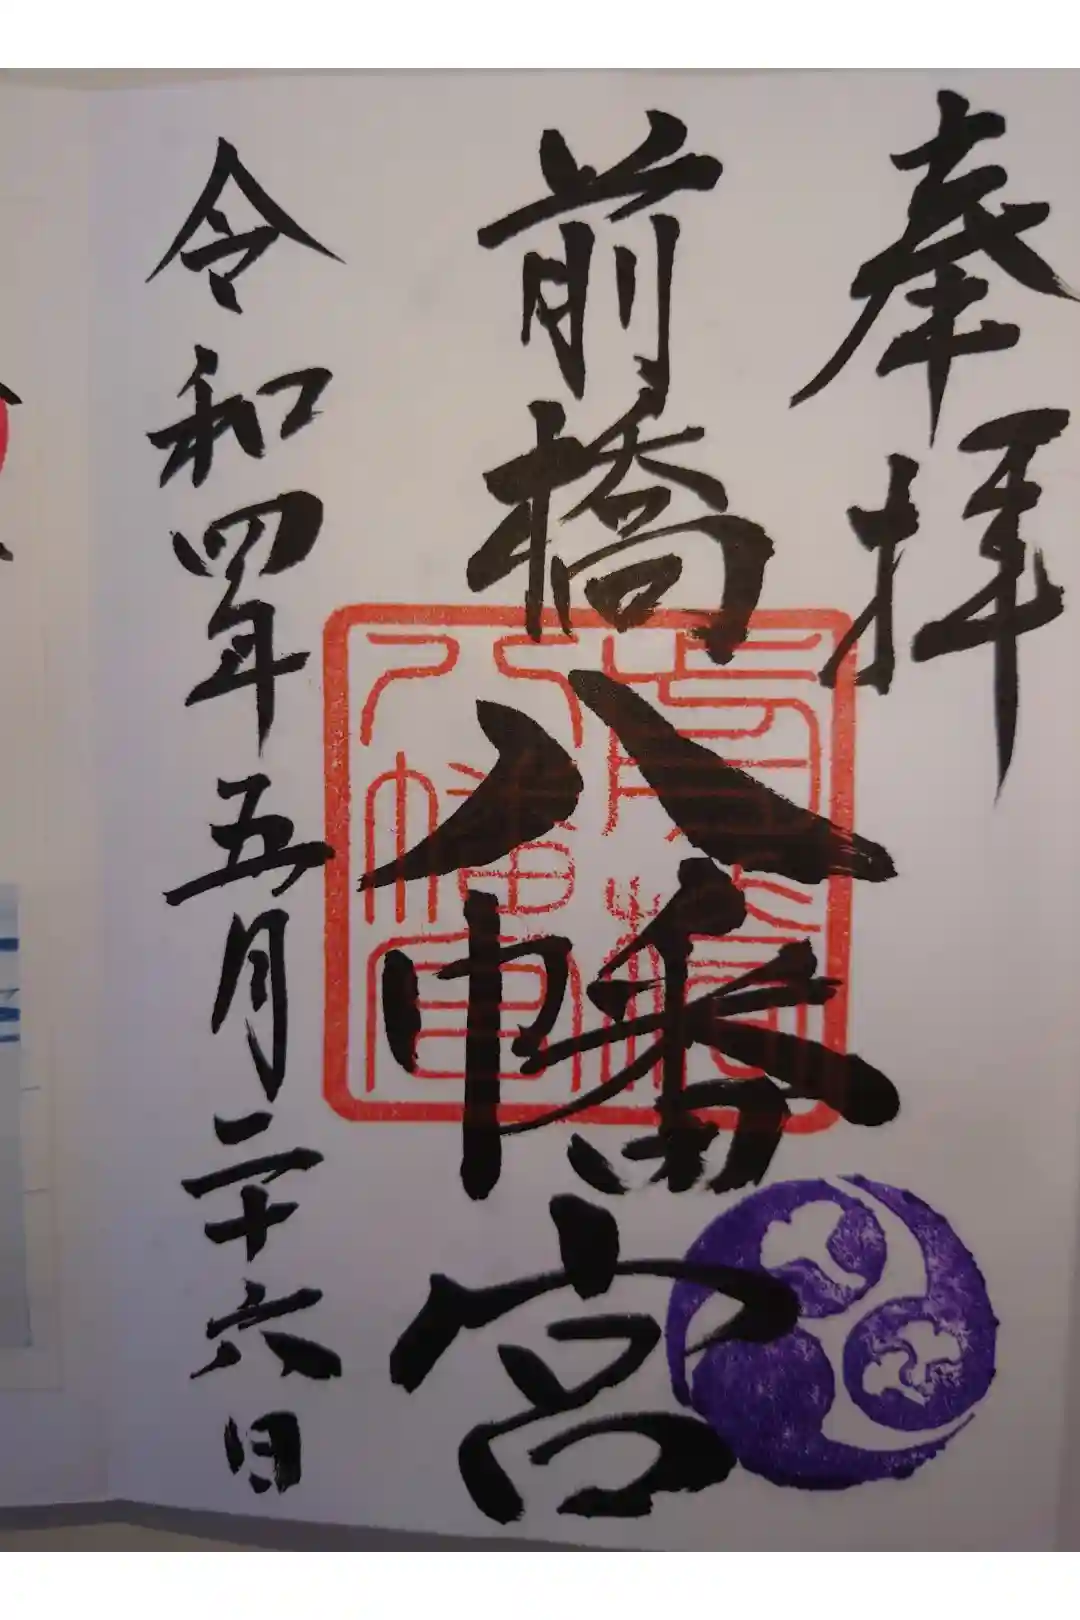 奉拝
前橋八幡宮
令和四年五月二十六日